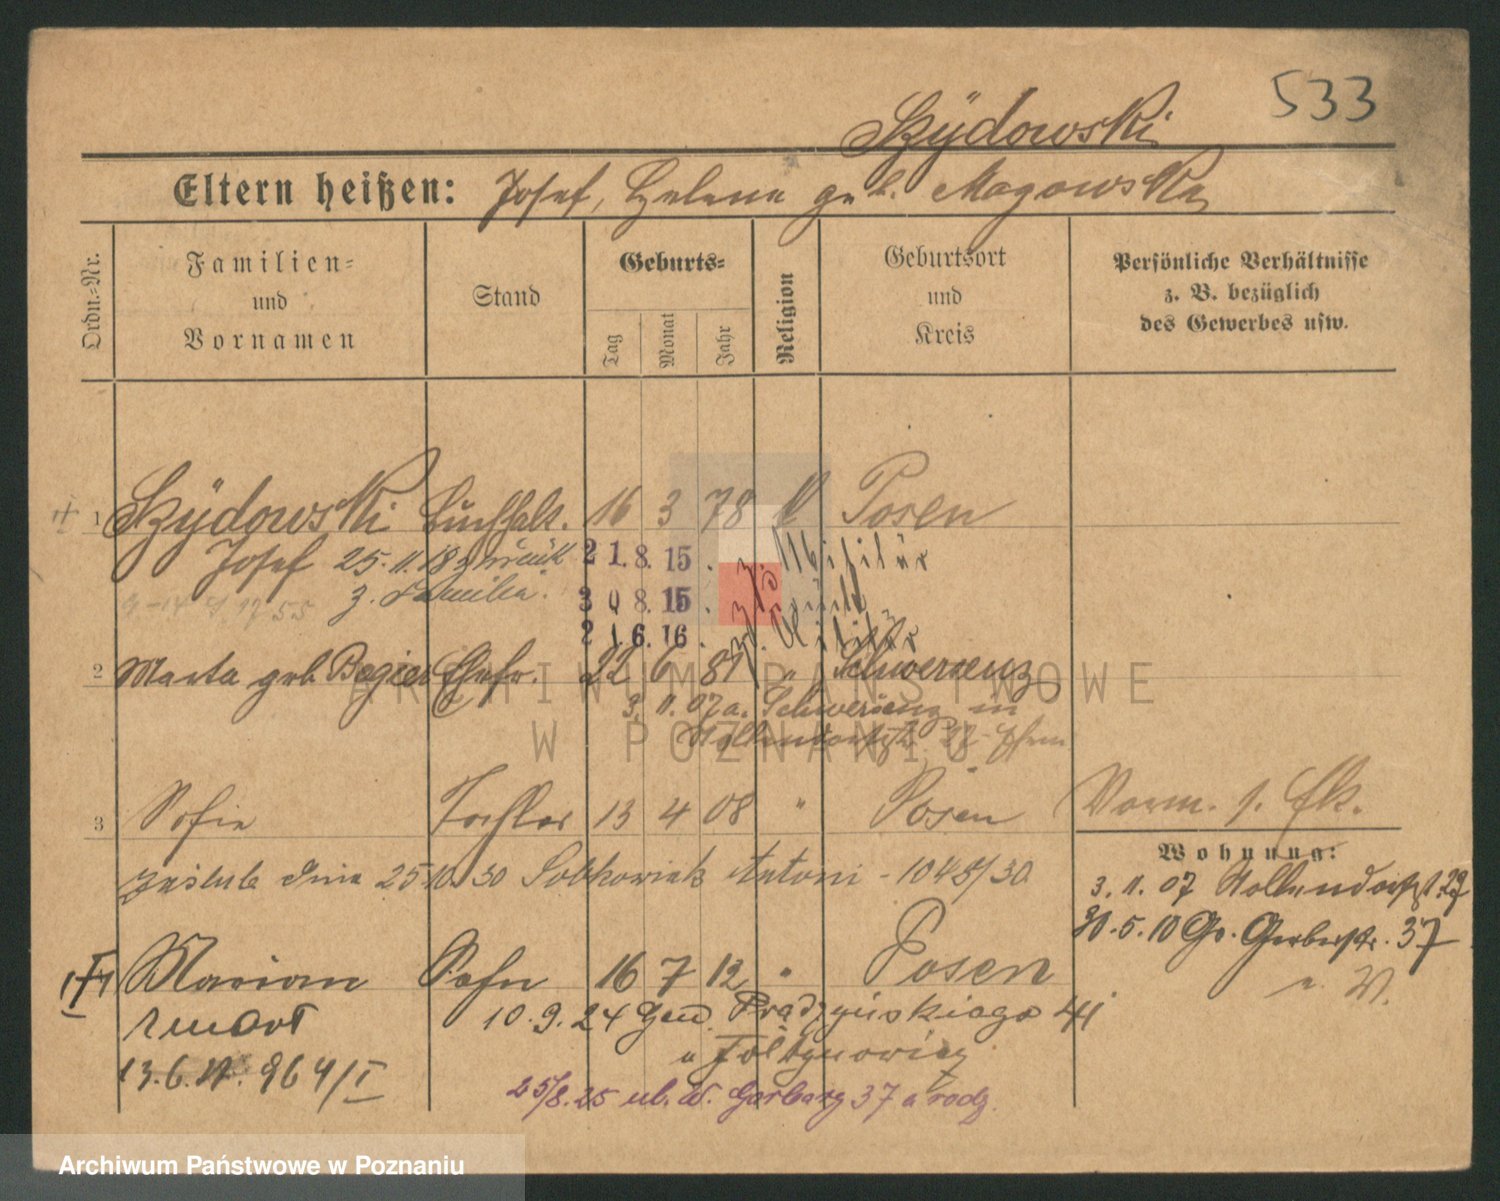 533
Szÿdowski
Eltern heißen: Josef, Helena geb. Magowska
Ordn.-Nr.
Familien-
und
Vornamen
Stand
Geburts-
Tag
Monat
Jahr
Religion
Geburtsort
und
Kreis
Persönliche Verhältnisse
z. B. bezüglich
des Gewerbes usw.
1 Szÿdowski Buchhalt. 16 3 78 K Posen
Josef 25.11.18 zurück 21.8.15. z. Militär
z. Familie. 30 8.15. zurück
21.6.16. z. Militär
2 Marta geb. Bogier Ehefr. 22 6 81 " Schwersenz
3.11.07 a. Schwersenz in
3 Sofie Tochter 13 4 08 " Posen
Vorm. s. Ek.
Wohnung:
zaślub. dnia 25.10.30 Sobkowiak Antoni - 1048/30
3.11.07 29
30.5.10 Gr. Gerberstr. 37
n. W.
Marian Sohn 16 7 12 " Posen
zmarł 10.9.24 Gen. Prądzyńskiego 41
13.6.17. 964/I
25/8.25 ul. W. Garbary 37 a rodz.
ARCHIWUM PAŃSTWOWE
W POZNANIU
Archiwum Państwowe w Poznaniu